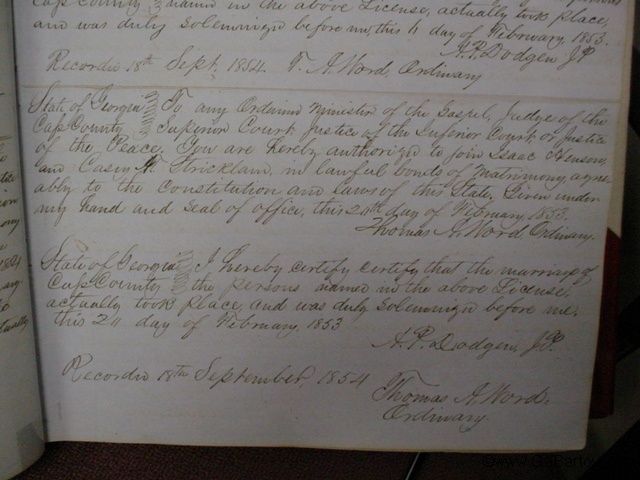 Cass County named in the above License, actually took place,
and was duly Solemnized before me, this 11 day of February, 1853.
A. P. Dodgen JP
Recordid 18th Sept, 1854. T. A. Word, Ordinary
State of Georgia To any Ordained Minister of the Gospel, Judge of the
Cass County Superior Court, Justice of the Inferior Court, or Justice
of the Peace. You are hereby authorized to join Isaac
and Casiny Stricklan, in lawful bonds of Matrimony, agre-
ably to the Constitution and laws of this State. Given under
my hand and Seal of office, this 20th day of February 1853.
Thomas A. Word, Ordinary.
State of Georgia I hereby certify certify that the marriage of
Cass County the persons named in the above License,
actually took place, and was duly Solemnized before me,
this 20 day of February 1853
A. P. Dodgen, J.P.
Recordid 18th September, 1854
Thomas A. Word,
Ordinary